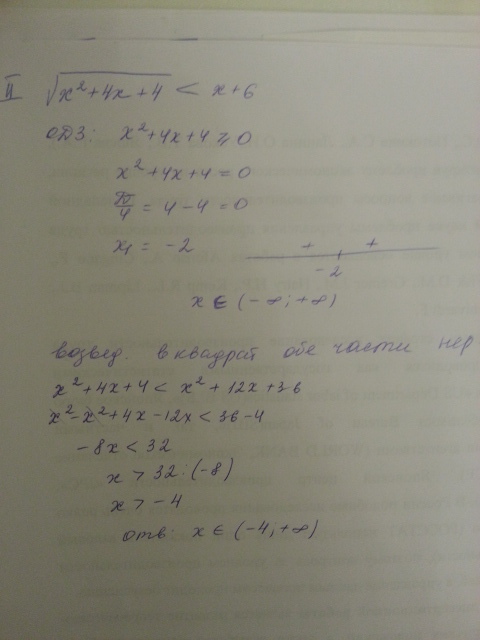 II √x²+4x+4 < x+6
ОДЗ: x²+4x+4 ≥ 0
x²+4x+4 = 0
D/4 = 4-4 = 0
x₁ = -2
+ +
-2
x ∈ (-∞; +∞)
возвед. в квадрат обе части нер
x²+4x+4 < x²+12x+36
x²-x²+4x-12x < 36-4
-8x < 32
x > 32:(-8)
x > -4
отв: x ∈ (-4, +∞)